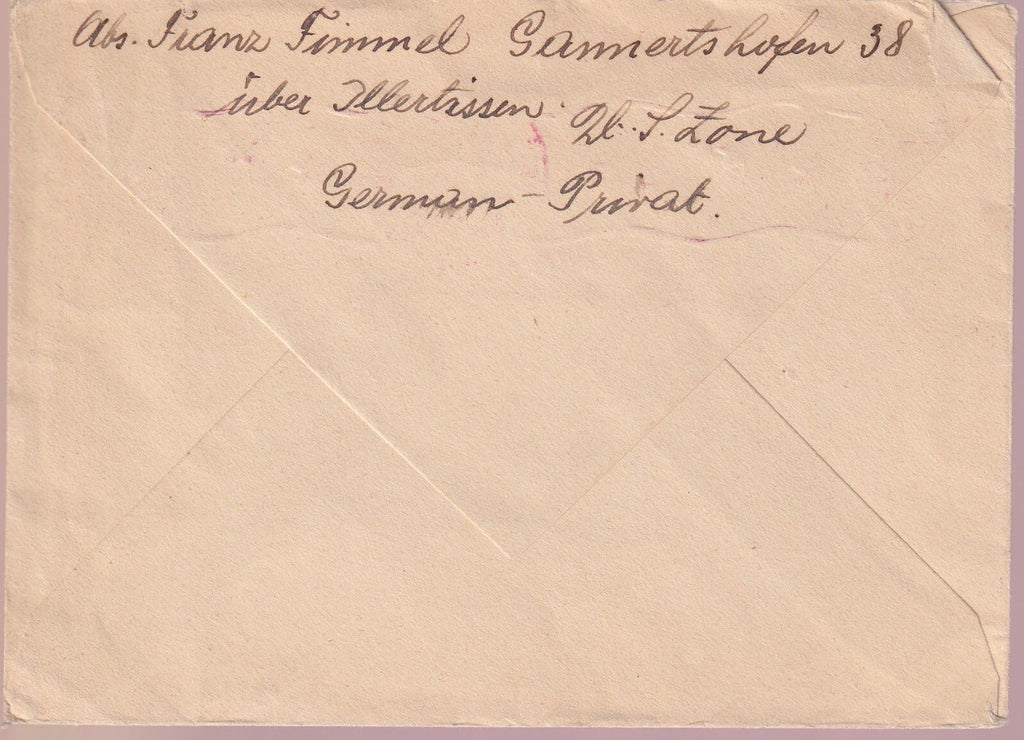 Abs. Franz Fimmel Gannertshofen 38
über Illertissen. U. S. Zone
German - Privat.